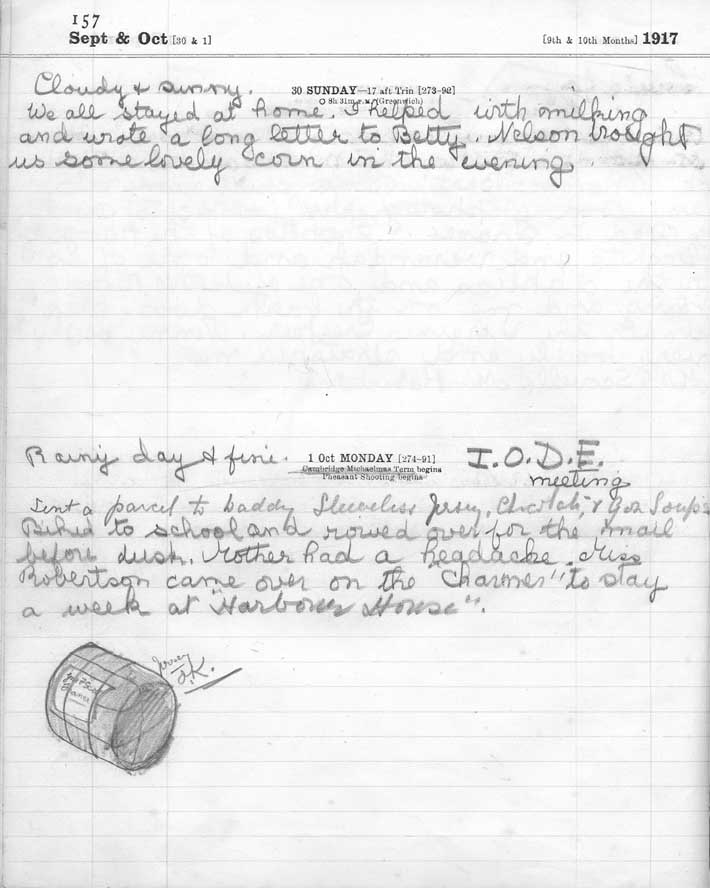 157
Sept & Oct [30 & 1] [9th & 10th Months] 1917
Cloudy & sunny. 30 SUNDAY—17 aft Trin [273-92]
8h 31m P.M. (Greenwich)
We all stayed at home. I helped with milking
and wrote a long letter to Betty. Nelson brought
us some lovely corn in the evening.
Rainy day & fine. 1 Oct MONDAY [274-91] I.O.D.E.
Cambridge Michaelmas Term begins
Pheasant Shooting begins
meeting
Sent a parcel to Daddy Sleeveless Jersey, Chocolate, &
Biked to school and rowed over for the mail
before dusk. Mother had a headache. Miss
Robertson came over on the "Charmer" to stay
a week at "Harbour House".
Jersey
J.K.